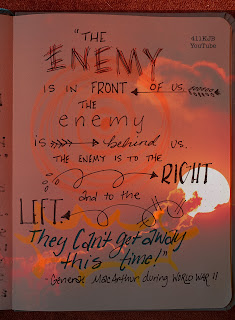 411KJB
YouTube
"THE
ENEMY
IS IN FRONT OF US.
THE
enemy
is behind us.
THE ENEMY IS TO THE
RIGHT
and to the
LEFT.
They Can't get away
this time!"
- General MacArthur during WORLD WAR II